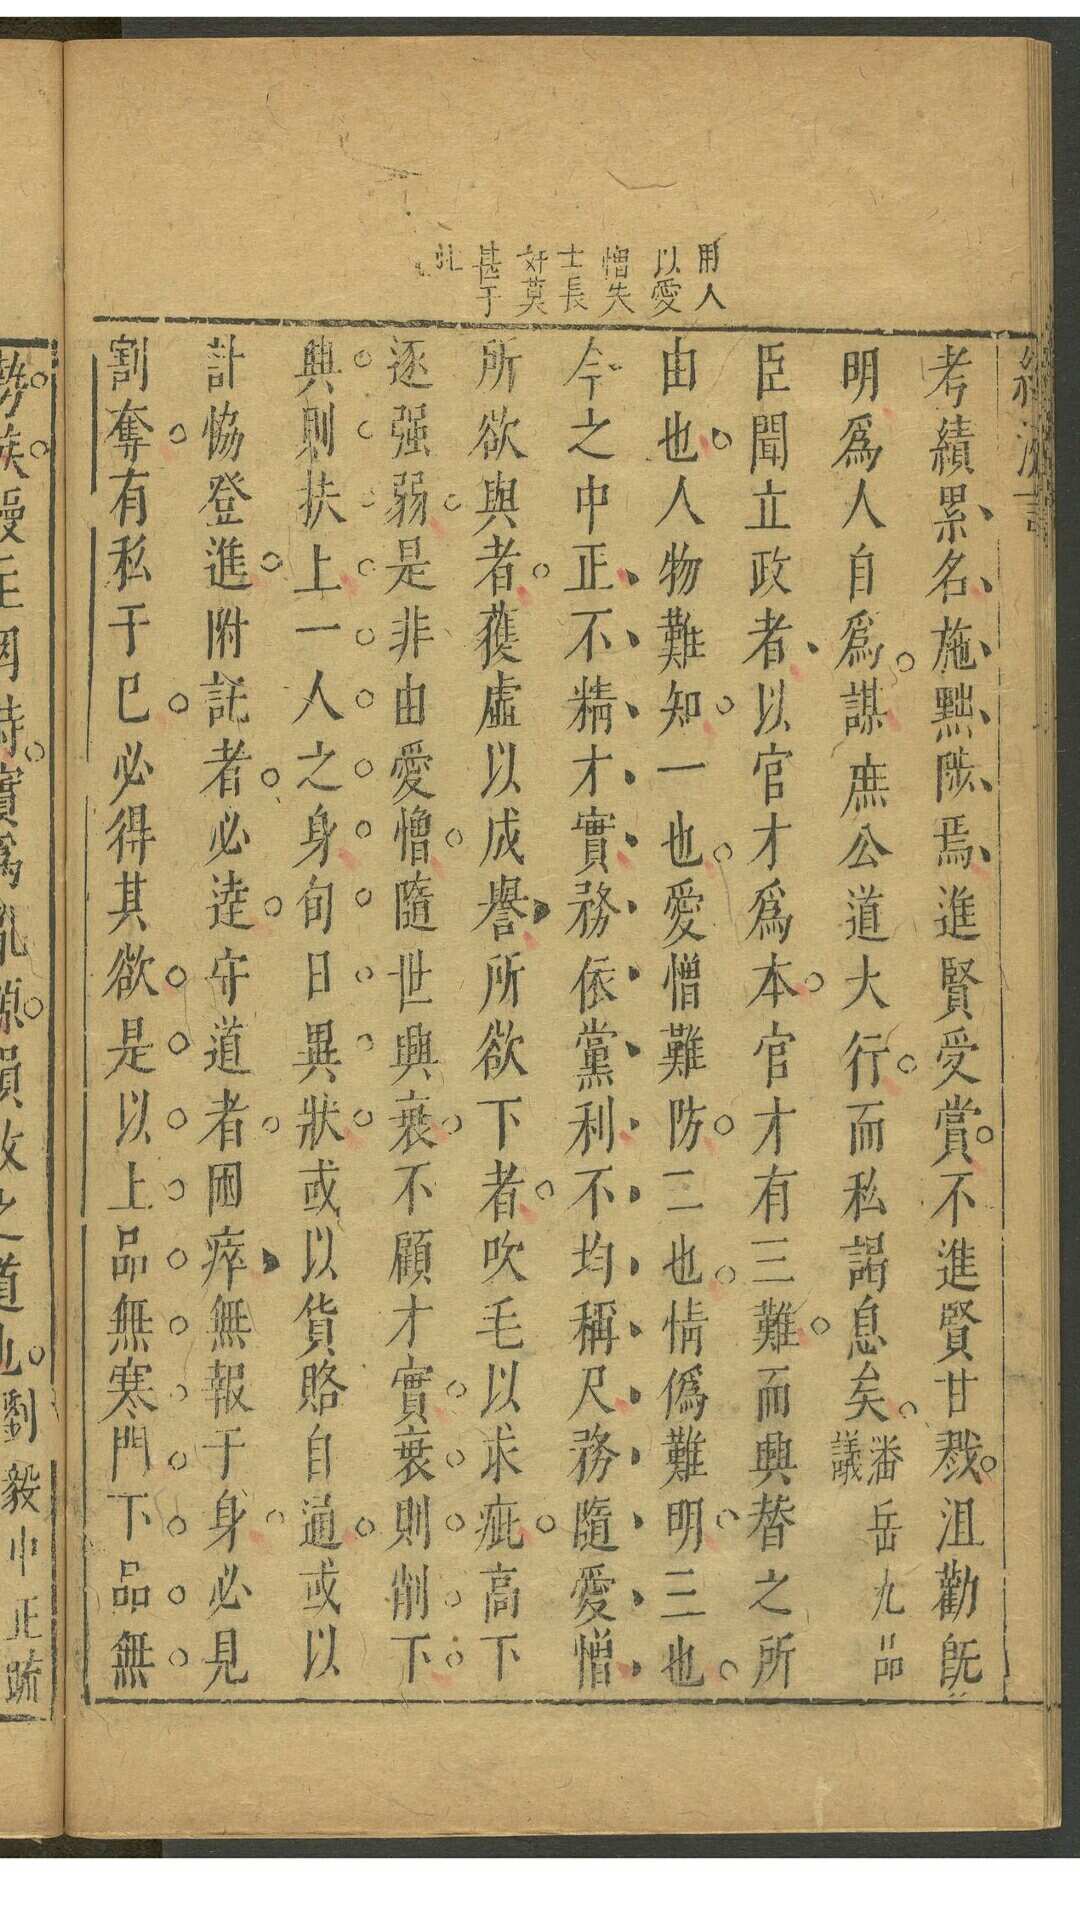 用人
以愛
憎失
士長
奸莫
甚于
此
考績累名施黜陟焉進賢受賞不進賢甘戮沮勸既
明爲人自爲謀庶公道大行而私謁息矣潘岳九品
議
臣聞立政者以官才爲本官才有三難而興替之所
由也人物難知一也愛憎難防二也情僞難明三也
今之中正不精才實務依黨利不均稱尺務隨愛憎
所欲與者獲虛以成譽所欲下者吹毛以求疵高下
逐强弱是非由愛憎隨世興衰不顧才實衰則削下
興則扶上一人之身旬日異狀或以貨賂自通或以
計恊登進附託者必達守道者困瘁無報于身必見
割奪有私于已必得其欲是以上品無寒門下品無
勢族 實爲亂源損政之道也劉毅中正疏